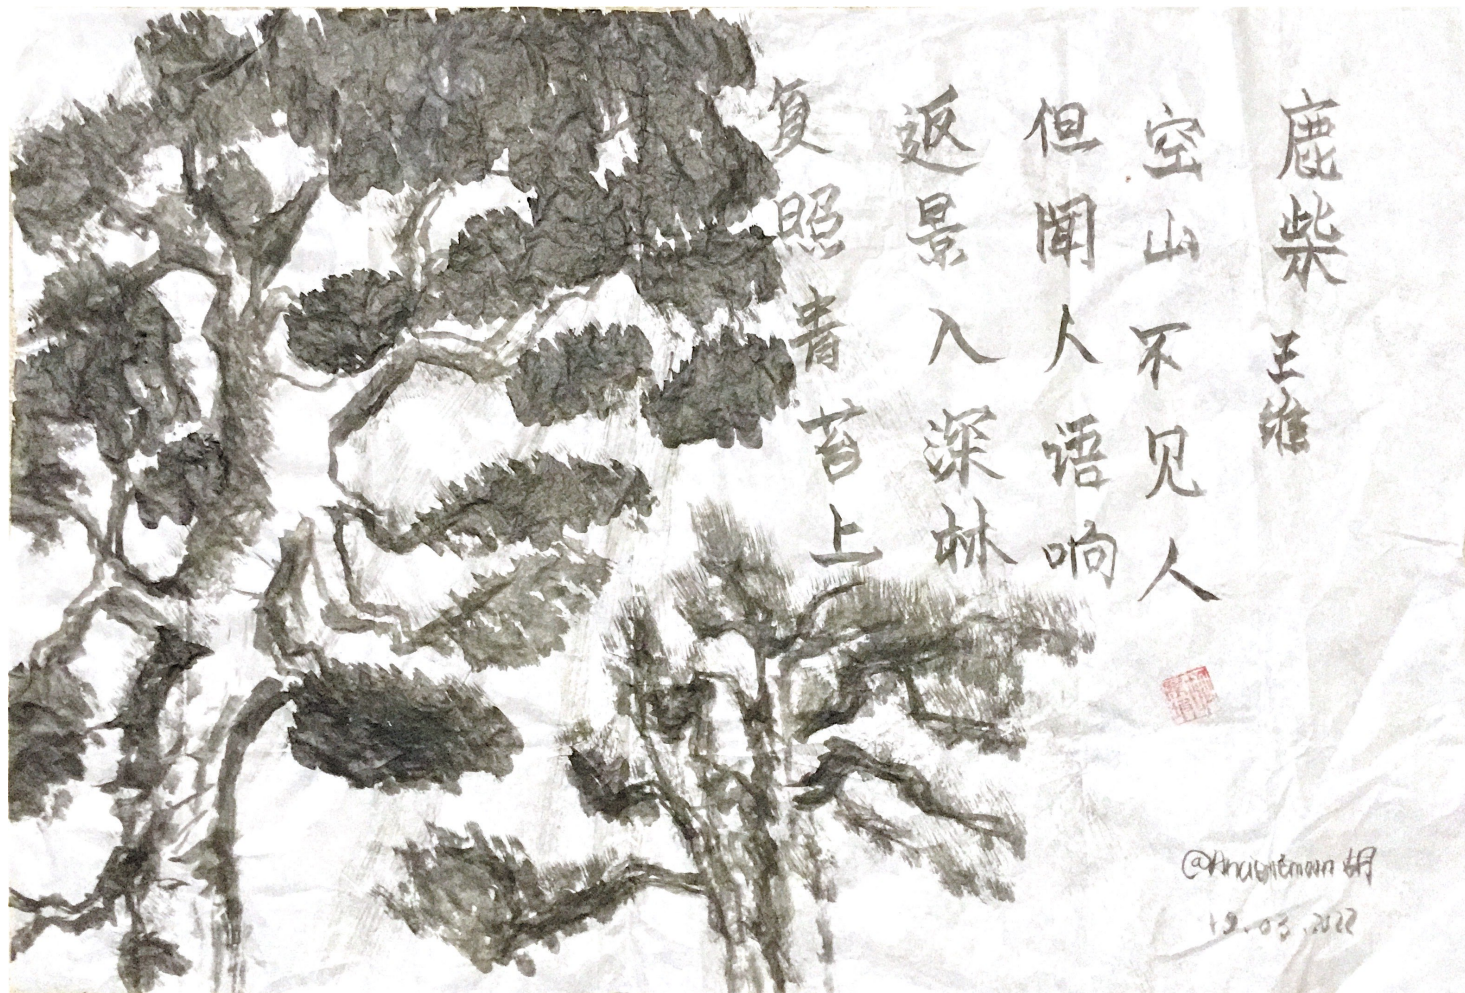 鹿柴
王維
空山不见人
但闻人语响
返景入深林
复照青苔上
@Ancientmoon 胡
19.03.2022